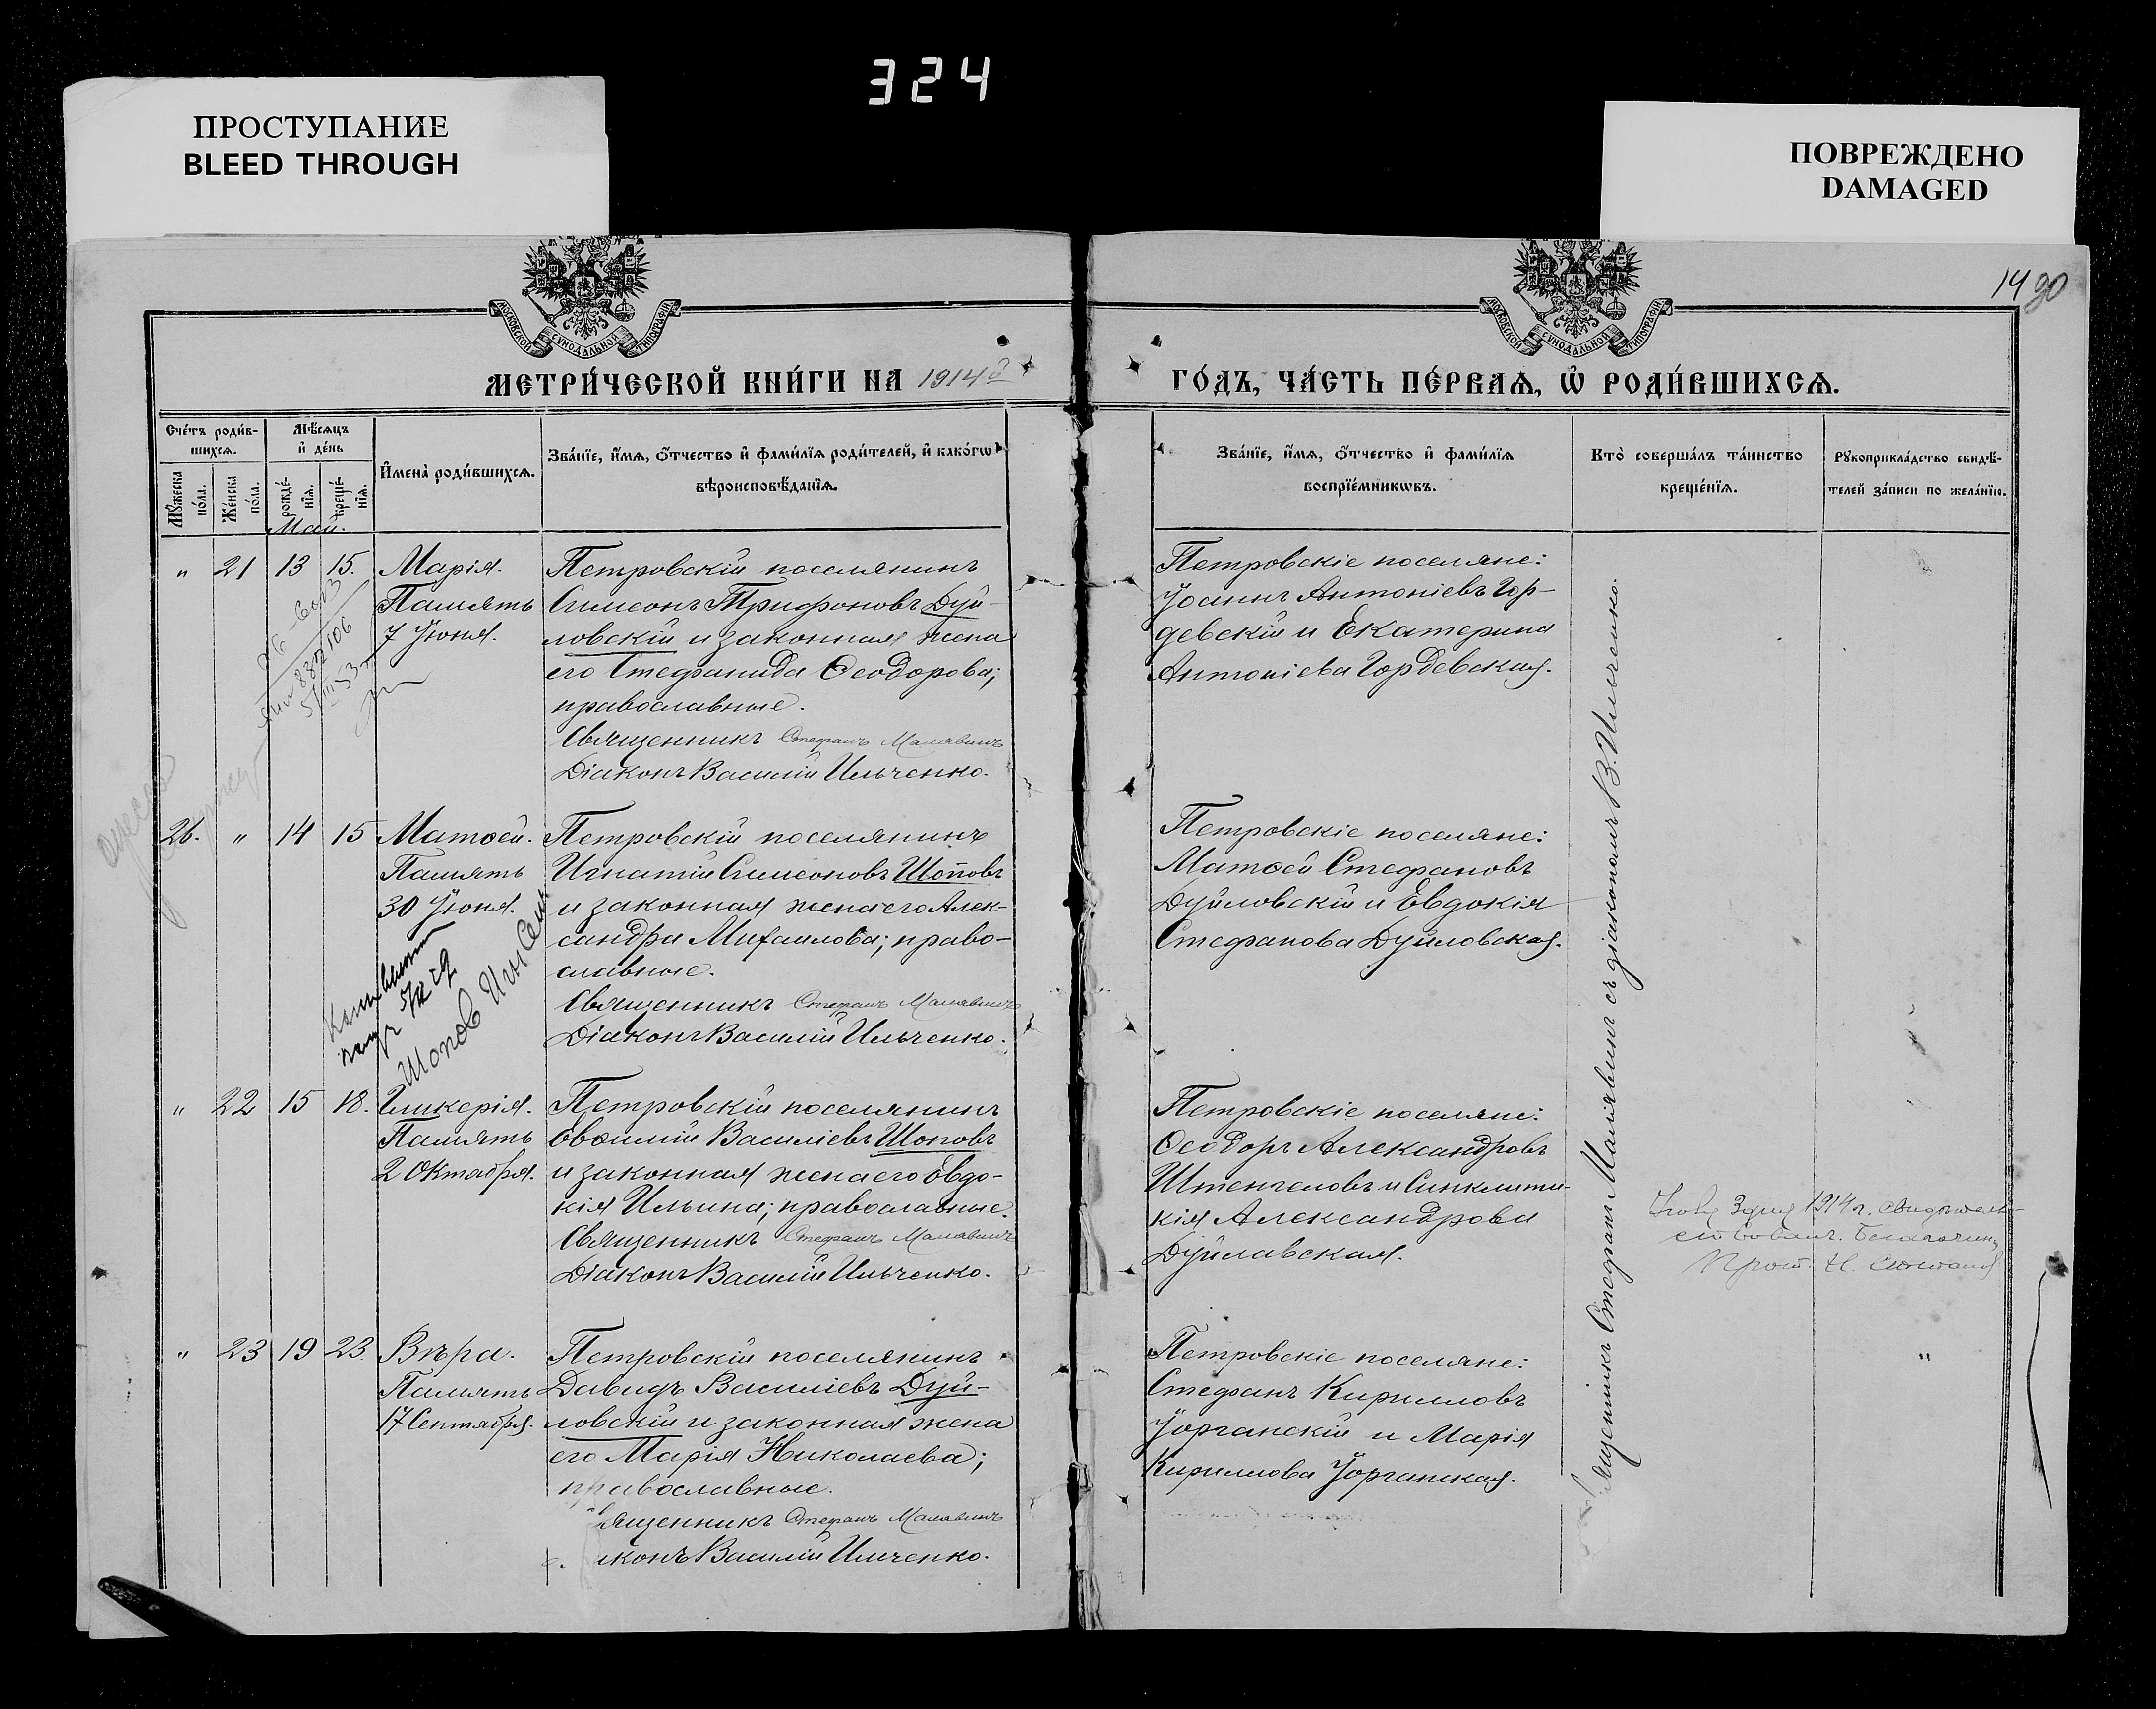 324
ПРОСТУПАНИЕ
BLEED THROUGH
ПОВРЕЖДЕНО
DAMAGED
14 90
МОСКОВСКОЙ СѴНОДАЛЬНОЙ ТИПОГРАФІИ
МОСКОВСКОЙ СѴНОДАЛЬНОЙ ТИПОГРАФІИ
МЕТРИ́ЧЕСКОЙ КНИ́ГИ НА 1914й
ГО́ДЪ, ЧА́СТЬ ПЕ́РВАЯ, Ѡ҆ РОДИ́ВШИХСЯ.
Сче́тъ роди́в-
шихся.
Мѣ́сяцъ
и҆ де́нь
Мꙋ́жеска по́ла.
Же́нска по́ла.
рожде́-нїя.
креще́-нїя.
И҆мена̀ роди́вшихся.
Зва́нїе, и҆́мя, ѻ҆́тчество и҆ фами́лїя роди́телей, и҆ како́гѡ
вѣроисповѣ́данїя.
Зва́нїе, и҆́мя, ѻ҆́тчество и҆ фами́лїя
воспрїе́мникѡвъ.
Кто̀ соверша́лъ та́инство
креще́нїя.
Рꙋкоприкла́дство свидѣ́-
телей за́писи по жела́нїю.
Май.
" 21 13 15. Марія.
Память
7 Іюня.
Петровскій поселянинъ
Симеонъ Трифоновъ Дуй-
ловскій и законная жена
его Стефанида Ѳеодорова;
православные.
Священникъ Стефанъ Малявинъ
Діаконъ Василій Ильченко.
Петровскіе поселяне:
Іоаннъ Антоніевъ Гор-
девскій и Екатерина
Антоніева Гордевская.
26. " 14 15 Матѳей.
Память
30 Іюня.
Петровскій поселянинъ
Игнатій Симеоновъ Шоповъ
и законная жена его Алек-
сандра Михаилова; право-
славные.
Священникъ Стефанъ Малявинъ
Діаконъ Василій Ильченко.
Петровскіе поселяне:
Матѳей Стефановъ
Дуйловскій и Евдокія
Стефанова Дуйловская.
Шопов
" 22 15 18. Гликерія.
Память
2 Октября.
Петровскій поселянинъ
Евѳимій Василіевъ Шоповъ
и законная жена его Евдо-
кія Ильина; православные.
Священникъ Стефанъ Малявинъ
Діаконъ Василій Ильченко.
Петровскіе поселяне:
Ѳеодоръ Александровъ
Штенгеловъ и Синклити-
кія Александрова
Дуйлавская.
" 23 19 23. Вѣра.
Память
17 Сентября.
Петровскій поселянинъ
Давидъ Василіевъ Дуй-
ловскій и законная жена
его Марія Николаева;
православные.
вященникъ Стефанъ Малявинъ
іаконъ Василій Ильченко.
Петровскіе поселяне:
Стефанъ Кирилловъ
Іорганскій и Марія
Кириллова Іорганская.
Священникъ Стефанъ Малявинъ съ діакономъ В. Ильченко.
3 дня 1914 г. свидѣтель-
ствовалъ. Благочин.
Прот. Н.
"